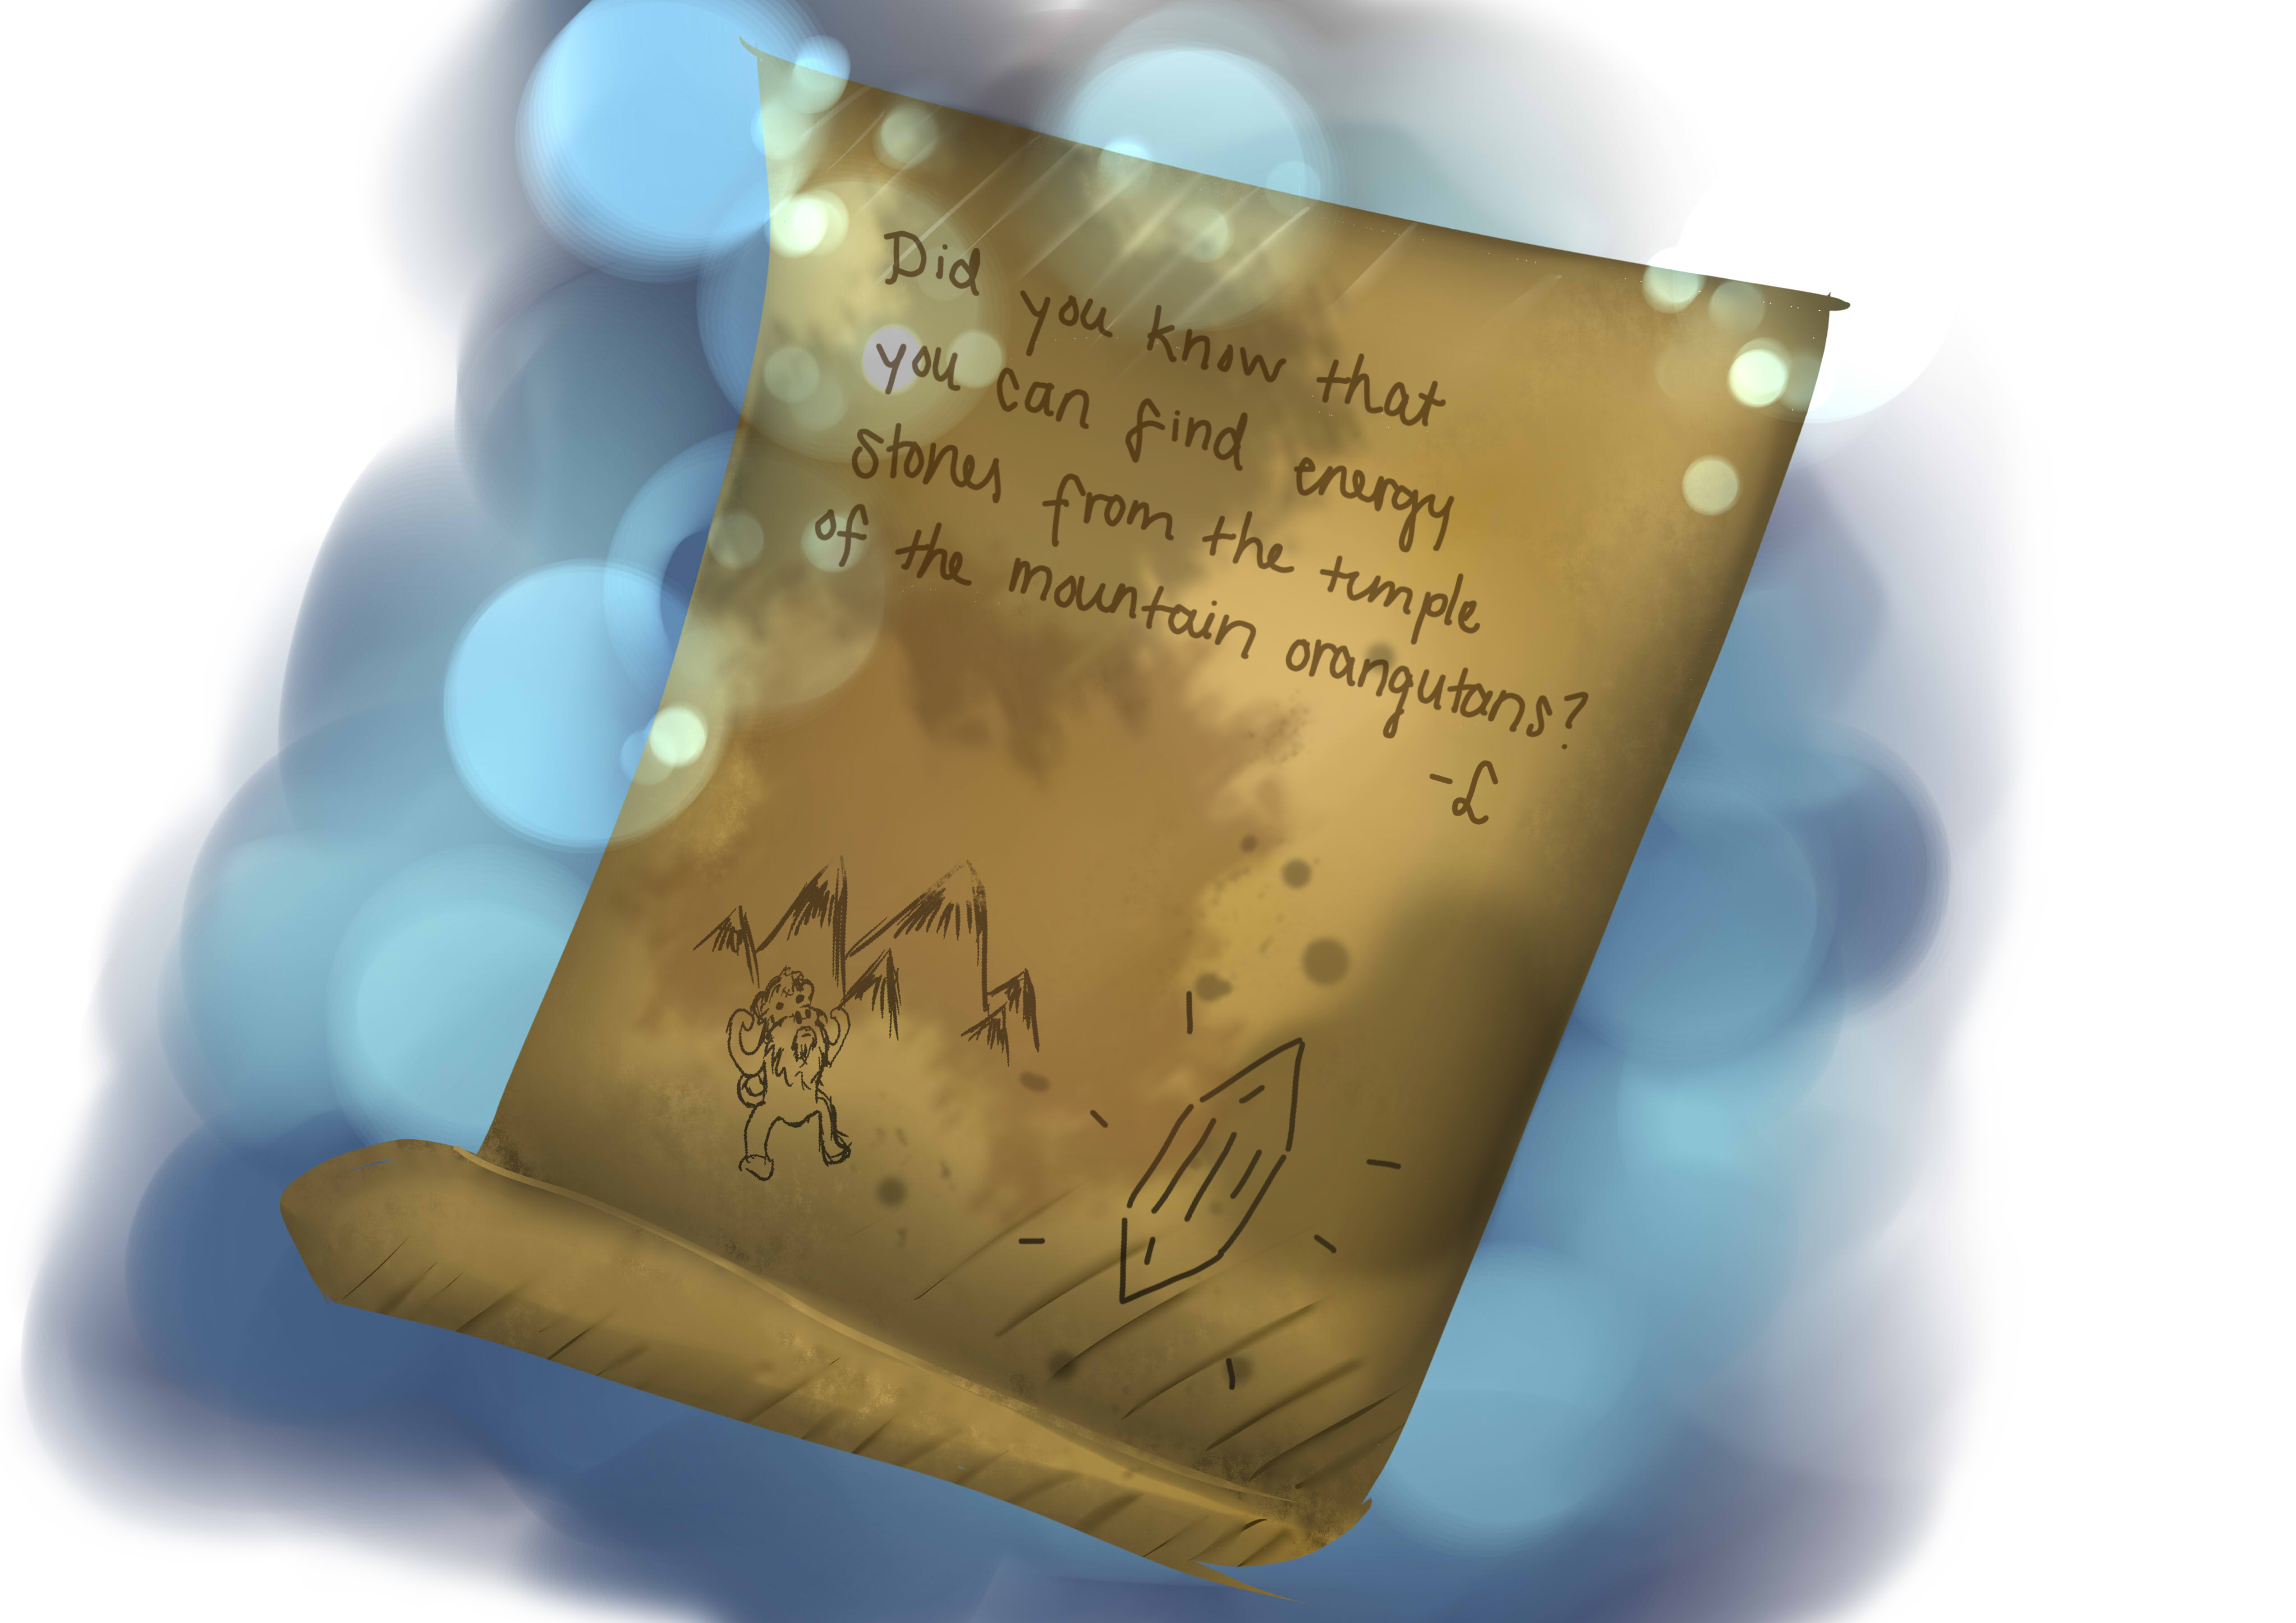 Did you know that
you can find energy
stones from the temple
of the mountain orangutans?
-L